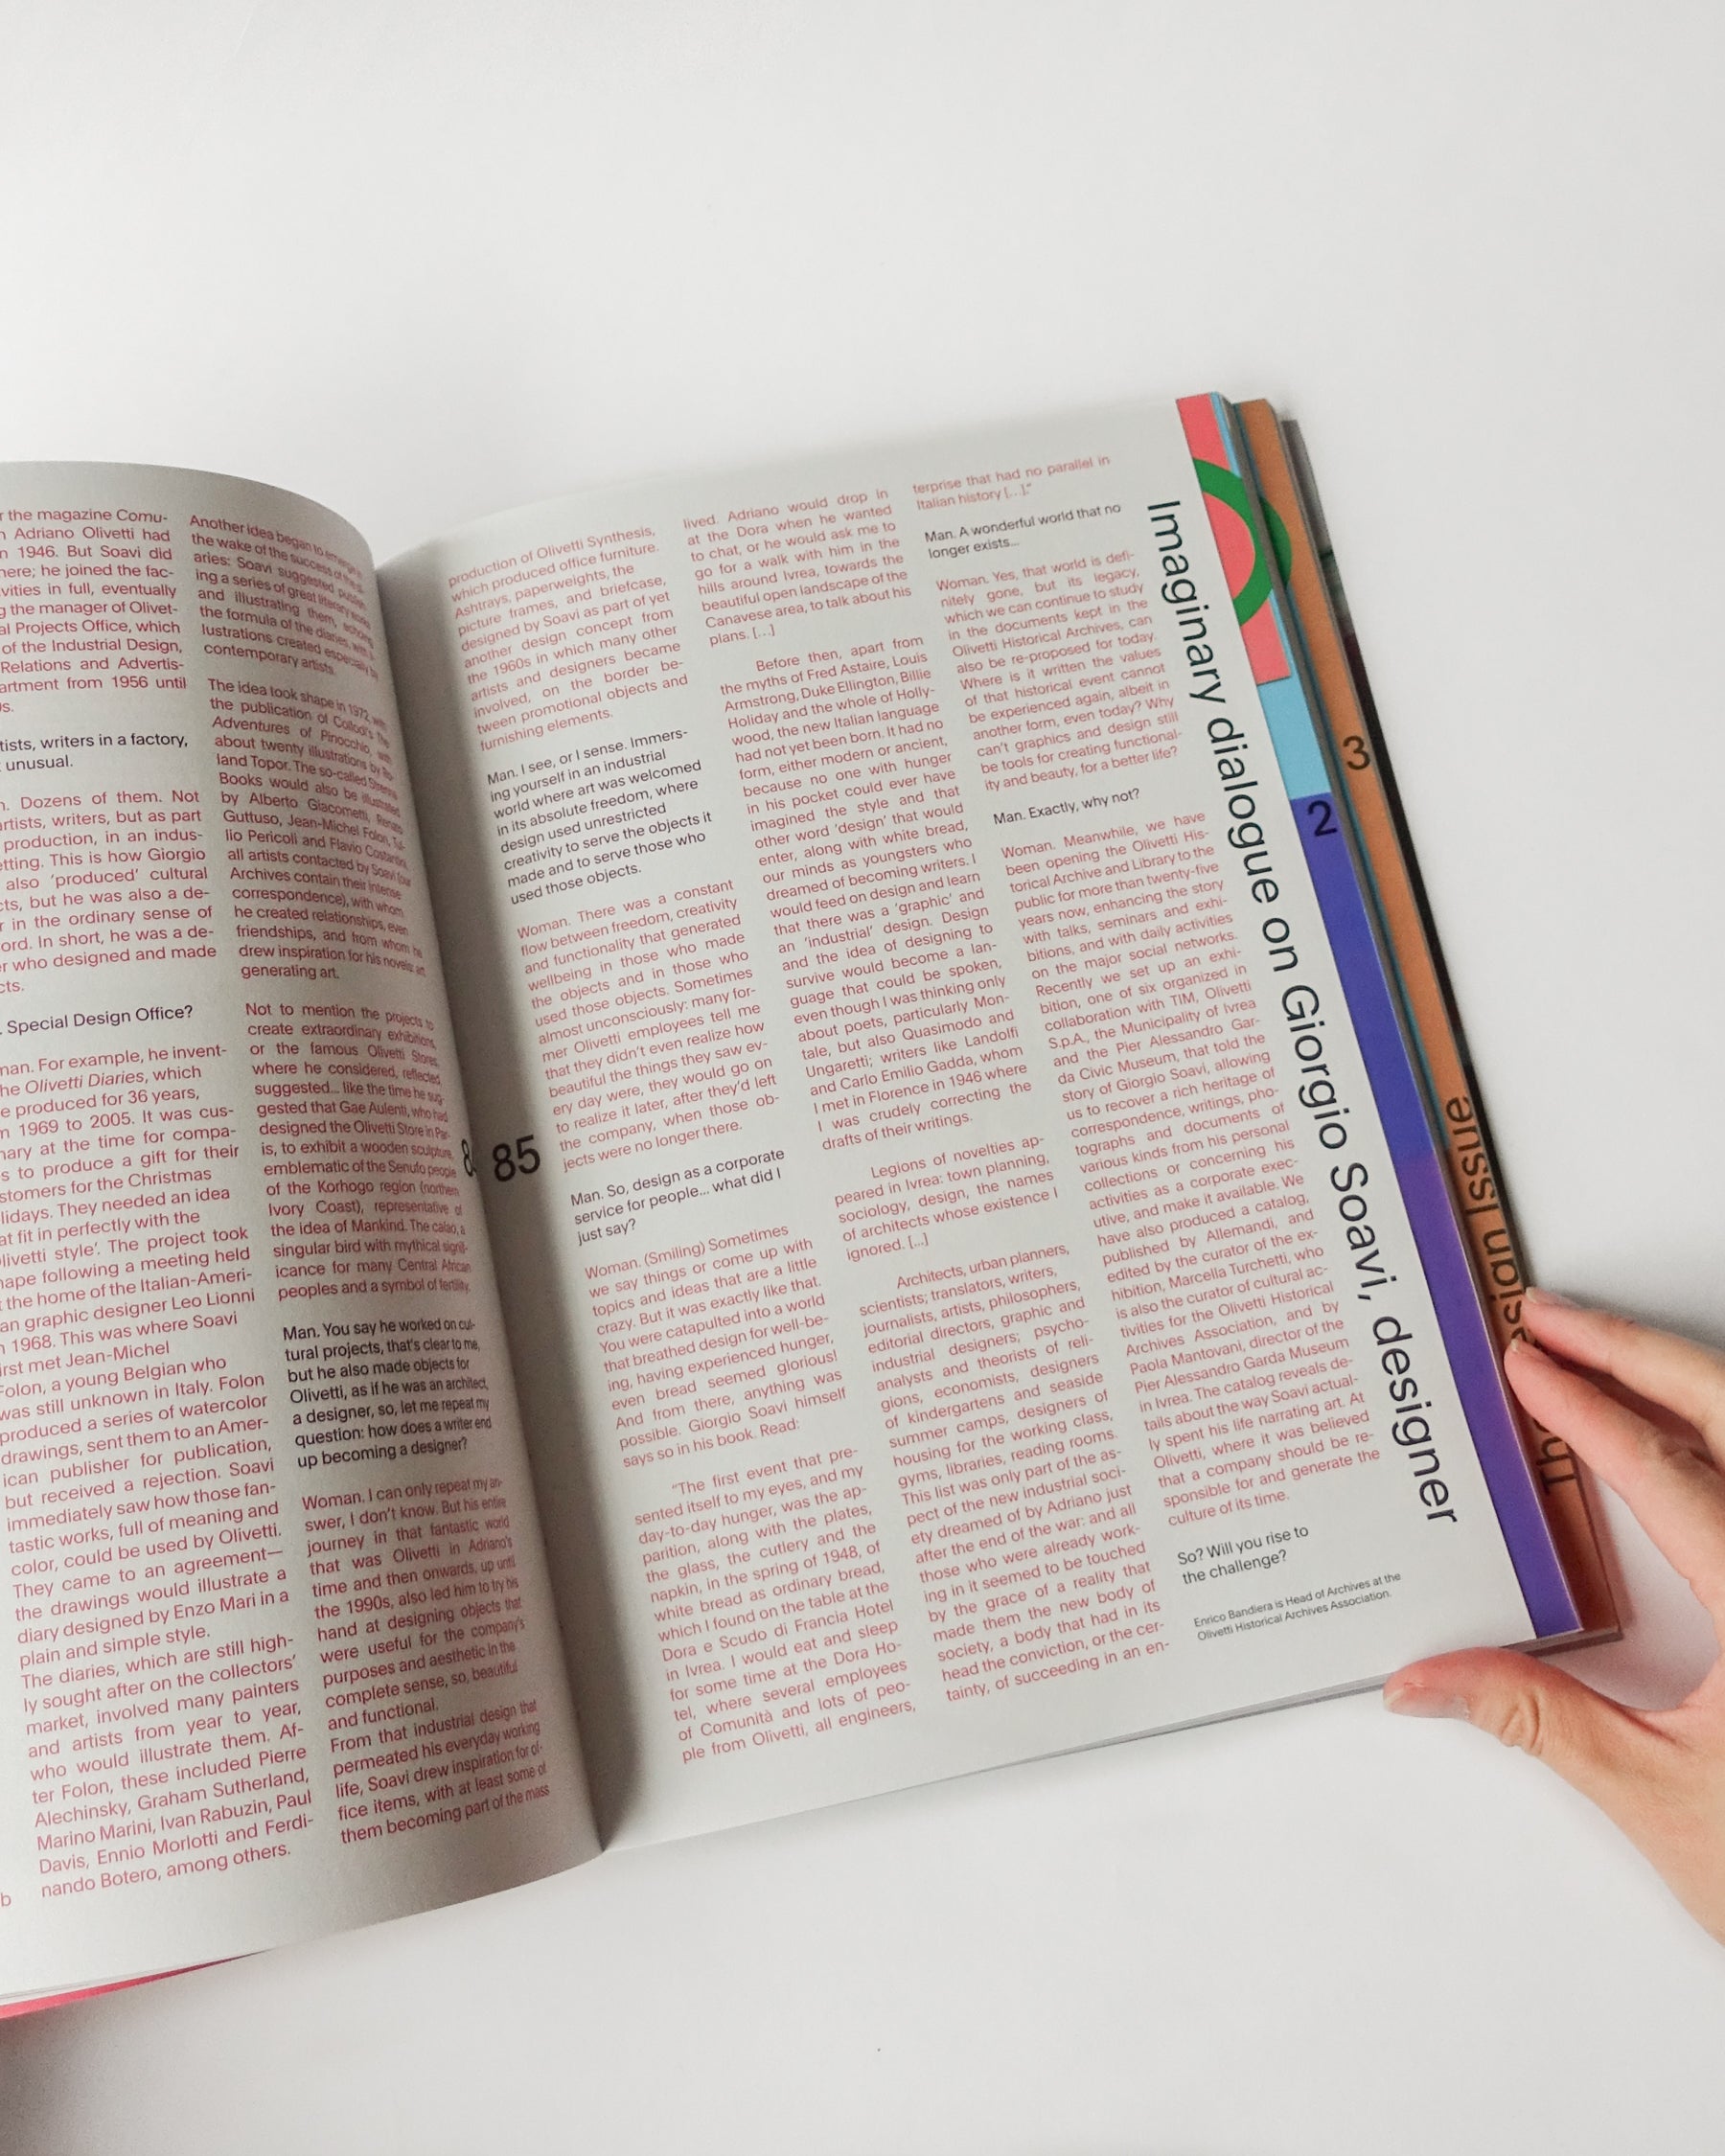 r the magazine Comu-
Adriano Olivetti had
n 1946. But Soavi did
here; he joined the fac-
vities in full, eventually
g the manager of Olivet-
al Projects Office, which
of the Industrial Design,
Relations and Advertis-
artment from 1956 until
s.
tists, writers in a factory,
unusual.
n. Dozens of them. Not
artists, writers, but as part
production, in an indus-
etting. This is how Giorgio
also 'produced' cultural
cts, but he was also a de-
r in the ordinary sense of
ord. In short, he was a de-
er who designed and made
cts.
. Special Design Office?
man. For example, he invent-
he Olivetti Diaries, which
e produced for 36 years,
m 1969 to 2005. It was cus-
nary at the time for compa-
s to produce a gift for their
stomers for the Christmas
lidays. They needed an idea
at fit in perfectly with the
livetti style'. The project took
hape following a meeting held
t the home of the Italian-Ameri-
an graphic designer Leo Lionni
n 1968. This was where Soavi
irst met Jean-Michel
Folon, a young Belgian who
was still unknown in Italy. Folon
produced a series of watercolor
drawings, sent them to an Amer-
ican publisher for publication,
but received a rejection. Soavi
immediately saw how those fan-
tastic works, full of meaning and
color, could be used by Olivetti.
They came to an agreement—
the drawings would illustrate a
diary designed by Enzo Mari in a
plain and simple style.
The diaries, which are still high-
ly sought after on the collectors'
market, involved many painters
and artists from year to year,
who would illustrate them. Af-
ter Folon, these included Pierre
Alechinsky, Graham Sutherland,
Marino Marini, Ivan Rabuzin, Paul
Davis, Ennio Morlotti and Ferdi-
nando Botero, among others.
b
Another idea began to emerge in
the wake of the success of the
aries: Soavi suggested publish
ing a series of great literary works
and illustrating them, echoing
the formula of the diaries, with il-
lustrations created especially by
contemporary artists.
The idea look shape in 1972, with
the publication of Collodi's The
Adventures of Pinocchio, with
about twenty illustrations by Ro-
land Topor. The so-called Strenna
Books would also be illustrated
by Alberto Giacometti, Renato
Guttuso, Jean-Michel Folon, Tul-
lio Pericoli and Flavio Costantini,
all artists contacted by Soavi (our
Archives contain their intense
correspondence), with whom
he created relationships, even
friendships, and from whom he
drew inspiration for his novels: art
generating art.
Not to mention the projects to
create extraordinary exhibitions,
or the famous Olivetti Stores,
where he considered, reflected,
suggested... like the time he sug-
gested that Gae Aulenti, who had
designed the Olivetti Store in Par-
is, to exhibit a wooden sculpture,
emblematic of the Senufo people
of the Korhogo region (northern
Ivory Coast), representative of
the idea of Mankind. The calao, a
singular bird with mythical signif-
icance for many Central African
peoples and a symbol of fertility.
Man. You say he worked on cul-
tural projects, that's clear to me,
but he also made objects for
Olivetti, as if he was an architect,
a designer, so, let me repeat my
question: how does a writer end
up becoming a designer?
Woman. I can only repeat my an-
swer, I don't know. But his entire
journey in that fantastic world
that was Olivetti in Adriano's
time and then onwards, up until
the 1990s, also led him to try his
hand at designing objects that
were useful for the company's
purposes and aesthetic in the
complete sense, so, beautiful
and functional.
From that industrial design that
permeated his everyday working
life, Soavi drew inspiration for of-
fice items, with at least some of
them becoming part of the mass
85
production of Olivetti Synthesis,
which produced office furniture.
Ashtrays, paperweights, the
picture frames, and briefcase,
designed by Soavi as part of yet
another design concept from
the 1960s in which many other
artists and designers became
involved, on the border be-
tween promotional objects and
furnishing elements.
Man. I see, or I sense. Immers-
ing yourself in an industrial
world where art was welcomed
in its absolute freedom, where
design used unrestricted
creativity to serve the objects it
made and to serve those who
used those objects.
Woman. There was a constant
flow between freedom, creativity
and functionality that generated
wellbeing in those who made
the objects and in those who
used those objects. Sometimes
almost unconsciously: many for-
mer Olivetti employees tell me
that they didn't even realize how
beautiful the things they saw ev-
ery day were, they would go on
to realize it later, after they'd left
the company, when those ob-
jects were no longer there.
Man. So, design as a corporate
service for people... what did I
just say?
Woman. (Smiling) Sometimes
we say things or come up with
topics and ideas that are a little
crazy. But it was exactly like that.
You were catapulted into a world
that breathed design for well-be-
ing, having experienced hunger,
even bread seemed glorious!
And from there, anything was
possible. Giorgio Soavi himself
says so in his book. Read:
"The first event that pre-
sented itself to my eyes, and my
day-to-day hunger, was the ap-
parition, along with the plates,
the glass, the cutlery and the
napkin, in the spring of 1948, of
white bread as ordinary bread,
which I found on the table at the
Dora e Scudo di Francia Hotel
in Ivrea. I would eat and sleep
for some time at the Dora Ho-
tel, where several employees
of Comunità and lots of peo-
ple from Olivetti, all engineers,
lived. Adriano would drop in
at the Dora when he wanted
to chat, or he would ask me to
go for a walk with him in the
hills around Ivrea, towards the
beautiful open landscape of the
Canavese area, to talk about his
plans. [...]
Before then, apart from
the myths of Fred Astaire, Louis
Armstrong, Duke Ellington, Billie
Holiday and the whole of Holly-
wood, the new Italian language
had not yet been born. It had no
form, either modern or ancient,
because no one with hunger
in his pocket could ever have
imagined the style and that
other word 'design' that would
enter, along with white bread,
our minds as youngsters who
dreamed of becoming writers. I
would feed on design and learn
that there was a 'graphic' and
an 'industrial' design. Design
and the idea of designing to
survive would become a lan-
guage that could be spoken,
even though I was thinking only
about poets, particularly Mon-
tale, but also Quasimodo and
Ungaretti; writers like Landolfi
and Carlo Emilio Gadda, whom
I met in Florence in 1946 where
I was crudely correcting the
drafts of their writings.
Legions of novelties ap-
peared in Ivrea: town planning,
sociology, design, the names
of architects whose existence I
ignored. [...]
Architects, urban planners,
scientists; translators, writers,
journalists, artists, philosophers,
editorial directors, graphic and
industrial designers; psycho-
analysts and theorists of reli-
gions, economists, designers
of kindergartens and seaside
summer camps, designers of
housing for the working class,
gyms, libraries, reading rooms.
This list was only part of the as-
pect of the new industrial soci-
ety dreamed of by Adriano just
after the end of the war: and all
those who were already work-
ing in it seemed to be touched
by the grace of a reality that
made them the new body of
society, a body that had in its
head the conviction, or the cer-
tainty, of succeeding in an en-
terprise that had no parallel in
Italian history [...]."
Man. A wonderful world that no
longer exists...
Woman. Yes, that world is defi-
nitely gone, but its legacy,
which we can continue to study
in the documents kept in the
Olivetti Historical Archives, can
also be re-proposed for today.
Where is it written the values
of that historical event cannot
be experienced again, albeit in
another form, even today? Why
can't graphics and design still
be tools for creating functional-
ity and beauty, for a better life?
Man. Exactly, why not?
Woman. Meanwhile, we have
been opening the Olivetti His-
torical Archive and Library to the
public for more than twenty-five
years now, enhancing the story
with talks, seminars and exhi-
bitions, and with daily activities
on the major social networks.
Recently we set up an exhi-
bition, one of six organized in
collaboration with TIM, Olivetti
S.p.A., the Municipality of Ivrea
and the Pier Alessandro Gar-
da Civic Museum, that told the
story of Giorgio Soavi, allowing
us to recover a rich heritage of
correspondence, writings, pho-
tographs and documents of
various kinds from his personal
collections or concerning his
activities as a corporate exec-
utive, and make it available. We
have also produced a catalog,
published by Allemandi, and
edited by the curator of the ex-
hibition, Marcella Turchetti, who
is also the curator of cultural ac-
tivities for the Olivetti Historical
Archives Association, and by
Paola Mantovani, director of the
Pier Alessandro Garda Museum
in Ivrea. The catalog reveals de-
tails about the way Soavi actual-
ly spent his life narrating art. At
Olivetti, where it was believed
that a company should be re-
sponsible for and generate the
culture of its time.
So? Will you rise to
the challenge?
Enrico Bandiera is Head of Archives at the
Olivetti Historical Archives Association.
Imaginary dialogue on Giorgio Soavi, designer
2
3
Issue